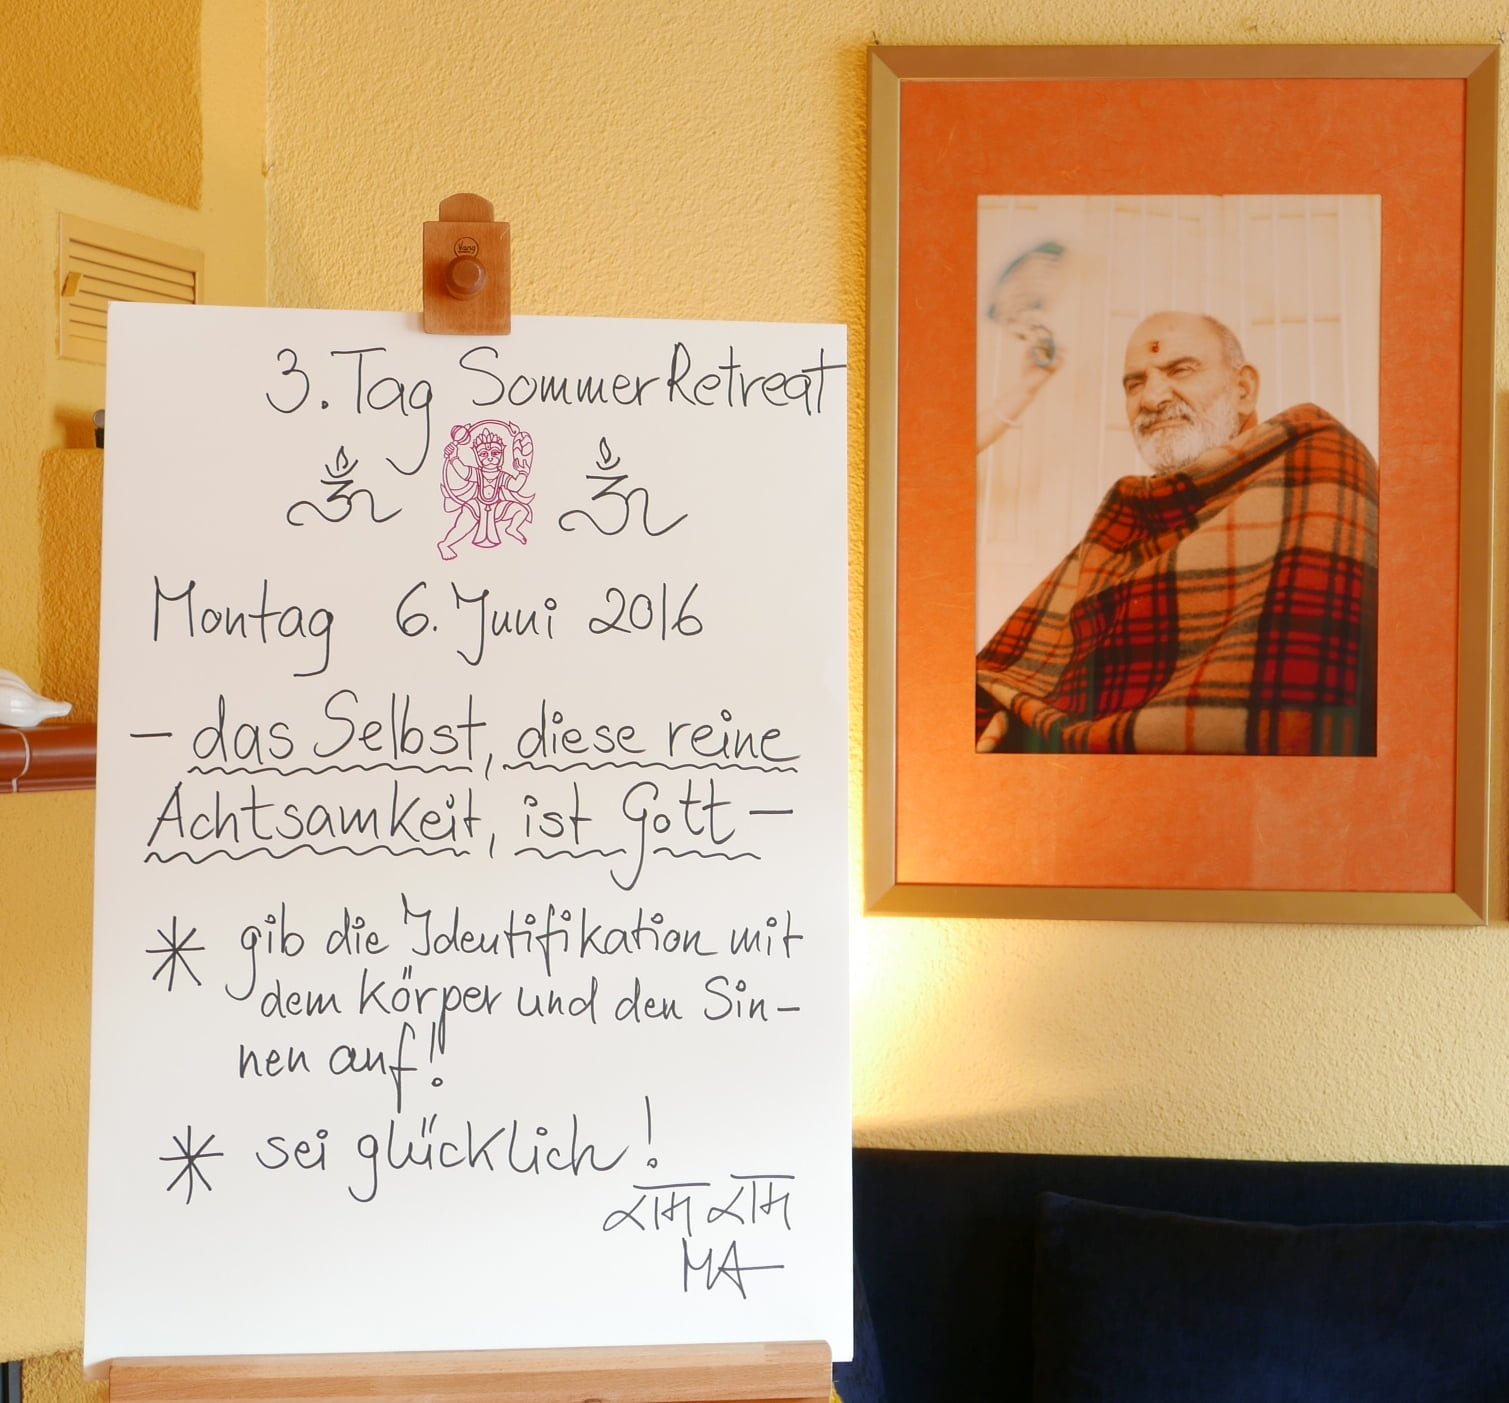 Vang
3. Tag SommerRetreat
ॐ ॐ
Montag 6. Juni 2016
– das Selbst, diese reine
Achtsamkeit, ist Gott –
* gib die Identifikation mit
dem Körper und den Sin-
nen auf!
* sei glücklich!
राम राम
MA